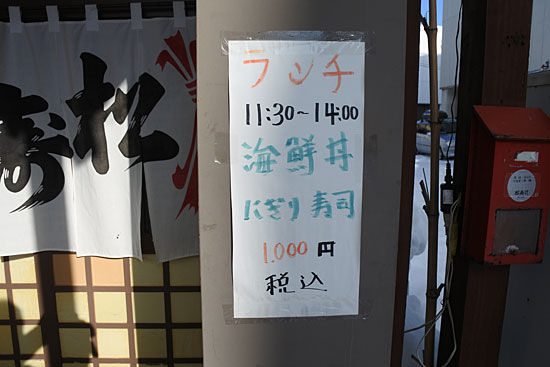 ランチ
11:30~14:00
海鮮丼
にぎり寿司
1.000円
税込